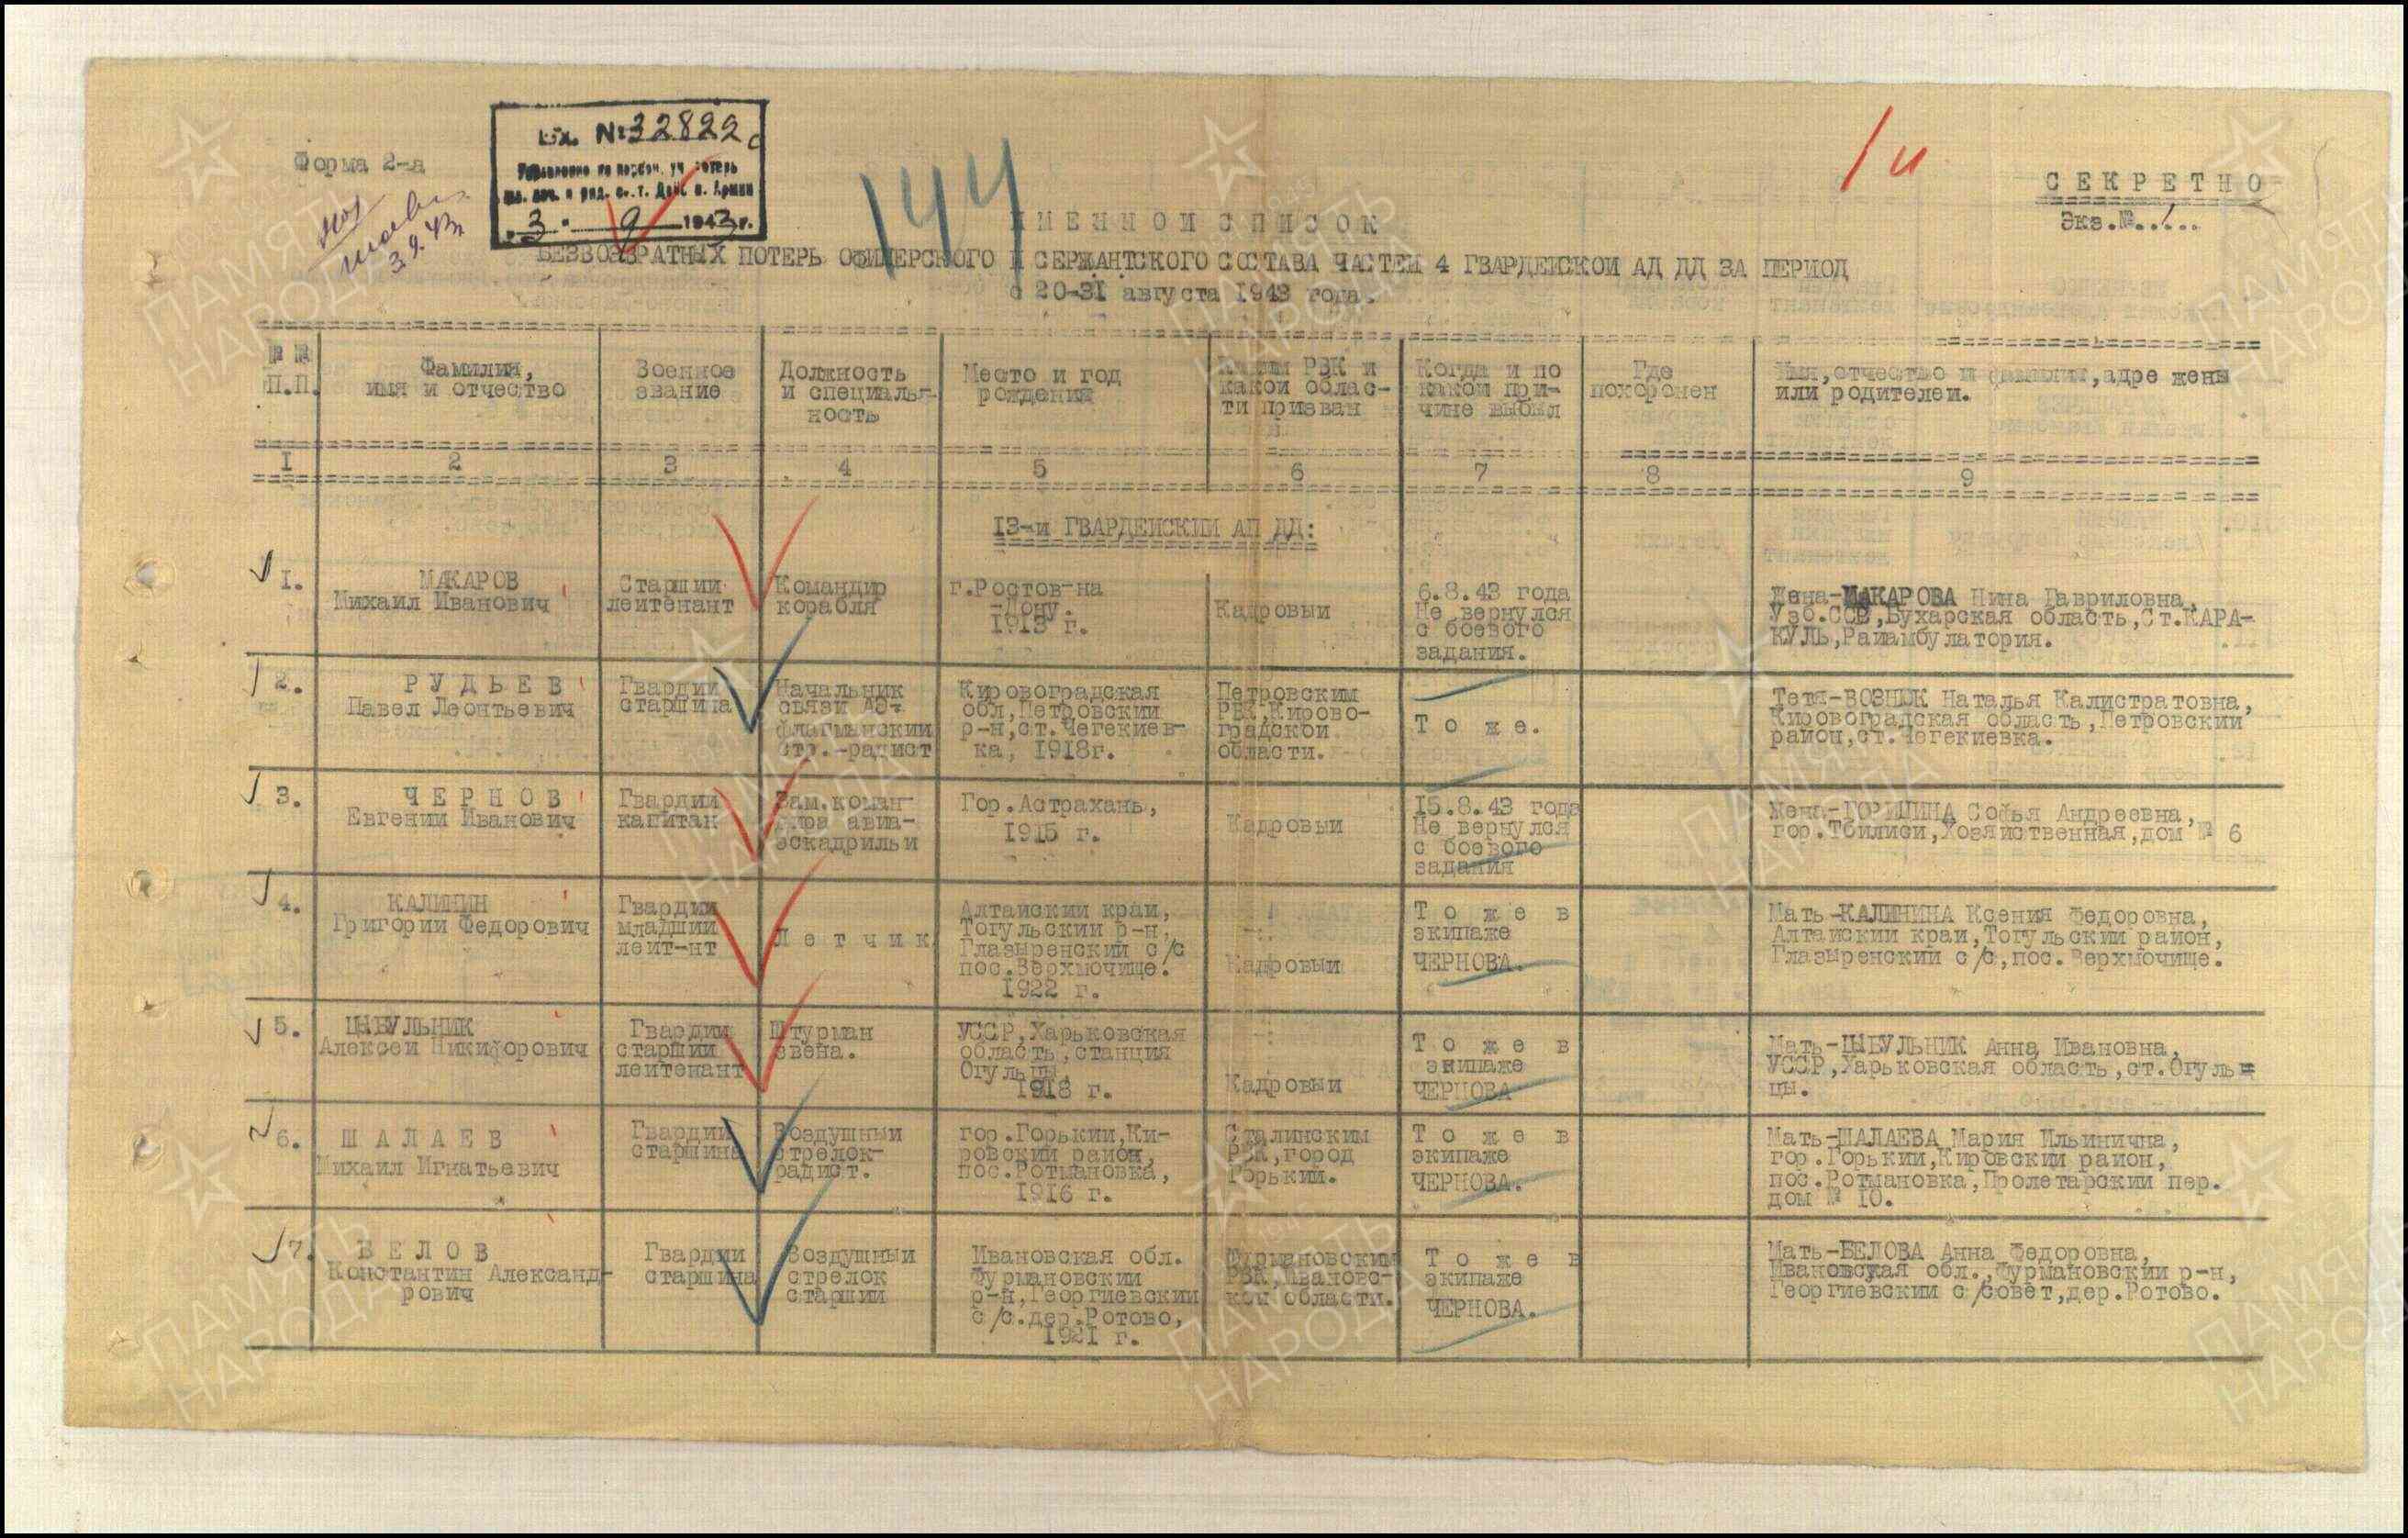 Форма 2-а
Вх. № 32822с
3. 9 1943г.
3.9.43
144
СЕКРЕТНО
Экз.№..1...
ИМЕННОЙ СПИСОК
БЕЗВОЗВРАТНЫХ ПОТЕРЬ ОФИЦЕРСКОГО И СЕРЖАНТСКОГО СОСТАВА ЧАСТЕЙ 4 ГВАРДЕЙСКОЙ АД ДД ЗА ПЕРИОД
с 20-31 августа 1943 года.
№ №
П.П.
Фамилия,
имя и отчество
Военное
звание
Должность
и специаль-
ность
Место и год
рождения
Каким РВК и
какой облас-
ти призван
Когда и по
какой при-
чине выбыл
Где
похоронен
Имя,отчество и фамилия,адре жены
или родителей.
I 2 3 4 5 6 7 8 9
13-й ГВАРДЕЙСКИЙ АП ДД:
1.
МАКАРОВ
Михаил Иванович
Старший
лейтенант
Командир
корабля
г.Ростов-на
-Дону.
1913 г.
Кадровый
6.8.43 года
Не вернулся
с боевого
задания.
Жена-МАКАРОВА Нина Гавриловна,
Узб.ССР,Бухарская область,Ст.КАРА-
КУЛЬ,Райамбулатория.
2.
РУДЬЕВ
Павел Леонтьевич
Гвардии
старшина
Начальник
связи АЭ-
флагманский
стр.-радист
Кировоградская
обл,Петровский
р-н,ст.Чегекиев-
ка, 1918г.
Петровским
РВК,Кирово-
градской
области.
То же.
Тетя-ВОЗНЮК Наталья Калистратовна,
Кировоградская область,Петровский
район,ст.Чегекиевка.
3.
ЧЕРНОВ
Евгений Иванович
Гвардии
капитан
Зам.коман-
дира авиа-
эскадрильи
Гор.Астрахань,
1915 г.
Кадровый
15.8.43 года
Не вернулся
с боевого
задания
Жена-ГОРШНИНА Софья Андреевна,
гор.Тбилиси,Хозяйственная,дом № 6
4.
КАЛИНИН
Григорий Федорович
Гвардии
младший
лейт-нт
Летчик
Алтайский край,
Тогульский р-н,
Глазыренский с/с
пос.Верхмочище.
1922 г.
-:-
Кадровый
То же в
экипаже
ЧЕРНОВА.
Мать-КАЛИНИНА Ксения Федоровна,
Алтайский край,Тогульский район,
Глазыренский с/с,пос.Верхмочище.
5.
ЦЫБУЛЬНИК
Алексей Никифорович
Гвардии
старший
лейтенант
Штурман
звена.
УССР,Харьковская
область,станция
Огульцы,
1918 г.
-:-
Кадровый
То же в
экипаже
ЧЕРНОВА
Мать-ЦЫБУЛЬНИК Анна Ивановна,
УССР,Харьковская область,ст.Огуль-
цы.
6.
ШАЛАЕВ
Михаил Игнатьевич
Гвардии
старшина
Воздушный
стрелок-
радист.
гор.Горький,Ки-
ровский район,
пос.Ротмановка,
1916 г.
Сталинским
РВК,город
Горький.
То же в
экипаже
ЧЕРНОВА.
Мать-ШАЛАЕВА Мария Ильинична,
гор.Горький,Кировский район,
пос.Ротмановка,Пролетарский пер.
дом № 10.
7.
БЕЛОВ
Константин Александ-
рович
Гвардии
старшина
Воздушный
стрелок
старший
Ивановская обл.
Фурмановский
р-н,Георгиевский
с/с.дер.Ротово,
1921 г.
Фурмановским
РВК,Ивановс-
кой области.
То же в
экипаже
ЧЕРНОВА.
Мать-БЕЛОВА Анна Федоровна,
Ивановская обл.,Фурмановский р-н,
Георгиевский с/совет,дер.Ротово.
ПАМЯТЬ
НАРОДА